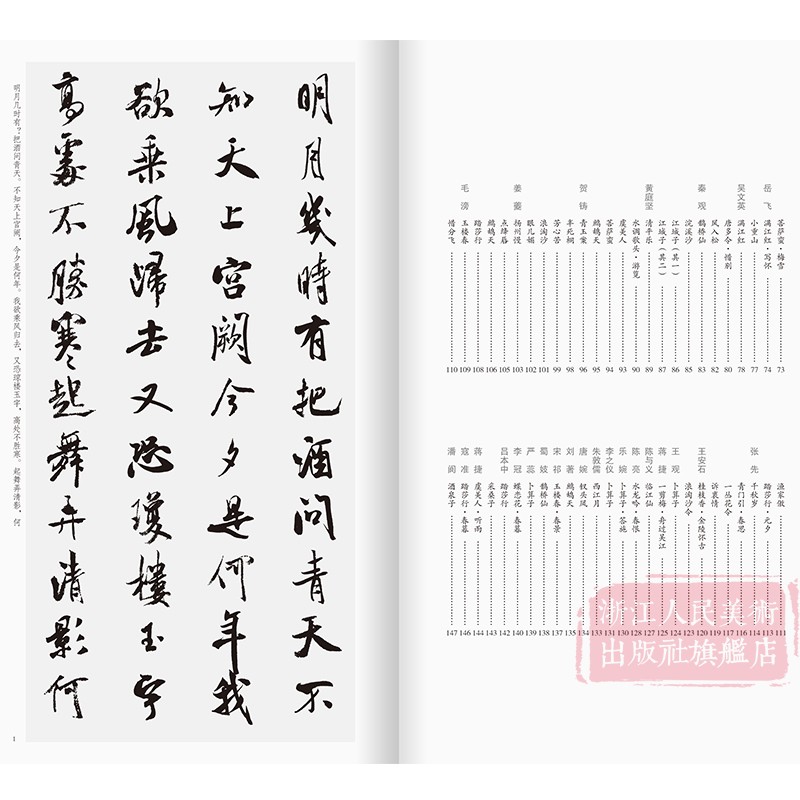 明月幾時有把酒問青天不
知天上宮闕今夕是何年我
欲乘風歸去又恐瓊樓玉宇
高處不勝寒起舞弄清影何
明月几时有？把酒问青天。不知天上宫阙，今夕是何年。我欲乘风归去，又恐琼楼玉宇，高处不胜寒。起舞弄清影，何
1
菩萨蛮·梅雪 73
岳飞 满江红·写怀 74
小重山 77
吴文英 满江红 78
唐多令·惜别 80
风入松 82
秦观 鹊桥仙 83
浣溪沙 85
江城子（其一） 86
江城子（其二） 87
黄庭坚 清平乐 89
水调歌头·游览 90
虞美人 92
菩萨蛮 94
鹧鸪天 95
贺铸 青玉案 96
半死桐 97
芳心苦 99
浪淘沙 101
眼儿媚 102
姜夔 扬州慢 103
点绛唇 105
鹧鸪天 106
踏莎行 108
毛滂 玉楼春 109
惜分飞 110
渔家傲 111
踏莎行·元夕 113
张先 千秋岁 114
青门引·春思 116
一丛花令 117
诉衷情 119
王安石 桂枝香·金陵怀古 120
浪淘沙令 123
王观 卜算子 124
蒋捷 一剪梅·舟过吴江 125
陈与义 临江仙 127
陈亮 水龙吟·春恨 128
乐婉 卜算子·答施 130
李之仪 卜算子 131
朱敦儒 西江月 133
唐婉 钗头凤 134
刘著 鹧鸪天 135
宋祁 玉楼春·春景 137
蜀妓 鹊桥仙 138
严蕊 卜算子 139
李冠 蝶恋花·春暮 140
吕本中 踏莎行 142
采桑子 143
蒋捷 虞美人·听雨 144
寇准 踏莎行·春暮 146
潘阆 酒泉子 147
浙江人民美術
出版社旗艦店